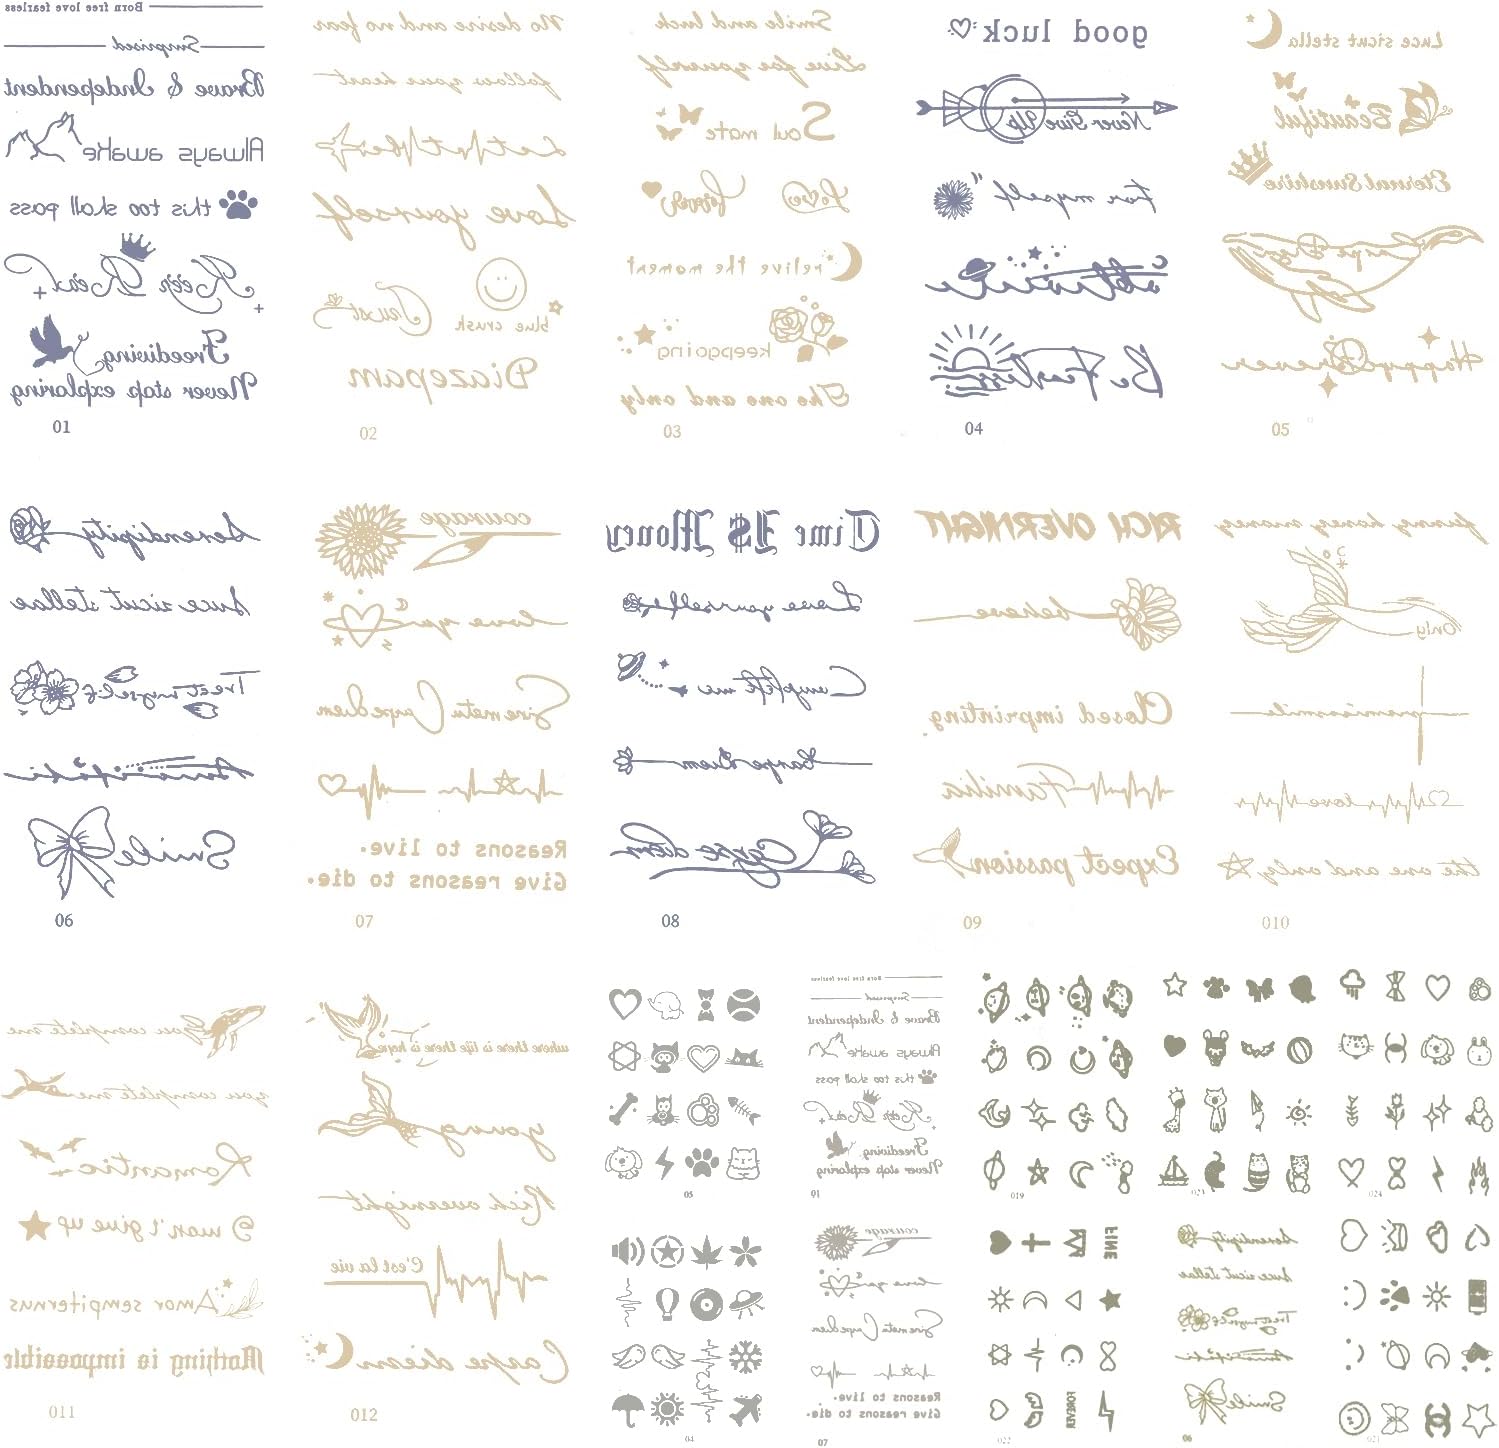 Born free love fearless
Surprised
Brave & Independent
Always awake
this too shall pass
Keep Relax
Freediving
Never stop exploring
01
No desire and no fear
follow your heart
Let it be
Love yourself
blue crush
Diazepam
02
Smile and luck
Live for yourself
Soul mate
Love forever
relive the moment
keepgoing
The one and only
03
good luck
Never Give Up
For myself
Be Fearless
04
Luce sicut stella
Beautiful
Eternal Sunshire
Happy Forever
05
Serendipity
Luce sicut stellae
Treat myself
Amor fati
Smile
06
courage
love you
Sine metu Carpe diem
Reasons to live.
Give reasons to die.
07
Time I$ Money
Love yourself
Complete me
Carpe diem
Carpe diem
08
RICH OVERNIGHT
believe
Closed imprinting.
Familia
Expect passion
09
funny honey money
Only
promissmile
love
the one and only
010
You complete me
you complete me
Romantic
I won't give up
Amor sempiternus
Nothing is impossible
011
where there is life there is hope
young
Rich overnight
C'est la vie
Carpe diem
012
05
Born free love fearless
Surprised
Brave & Independent
Always awake
this too shall pass
Keep Relax
Freediving
Never stop exploring
01
019
021
024
04
courage
love you
Sine metu Carpe diem
Reasons to live.
Give reasons to die.
07
FINE
FOREVER
022
Serendipity
Luce sicut stellae
Treat myself
Amor fati
Smile
06
021